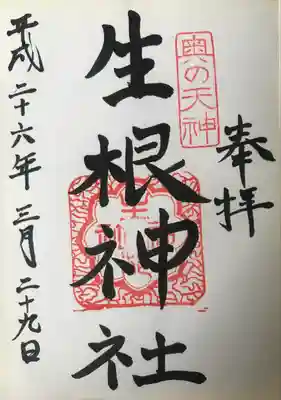 奉拝
奥の天神
生根神社
平成二十六年三月二十九日